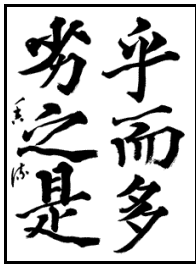 乎而多
劣之是